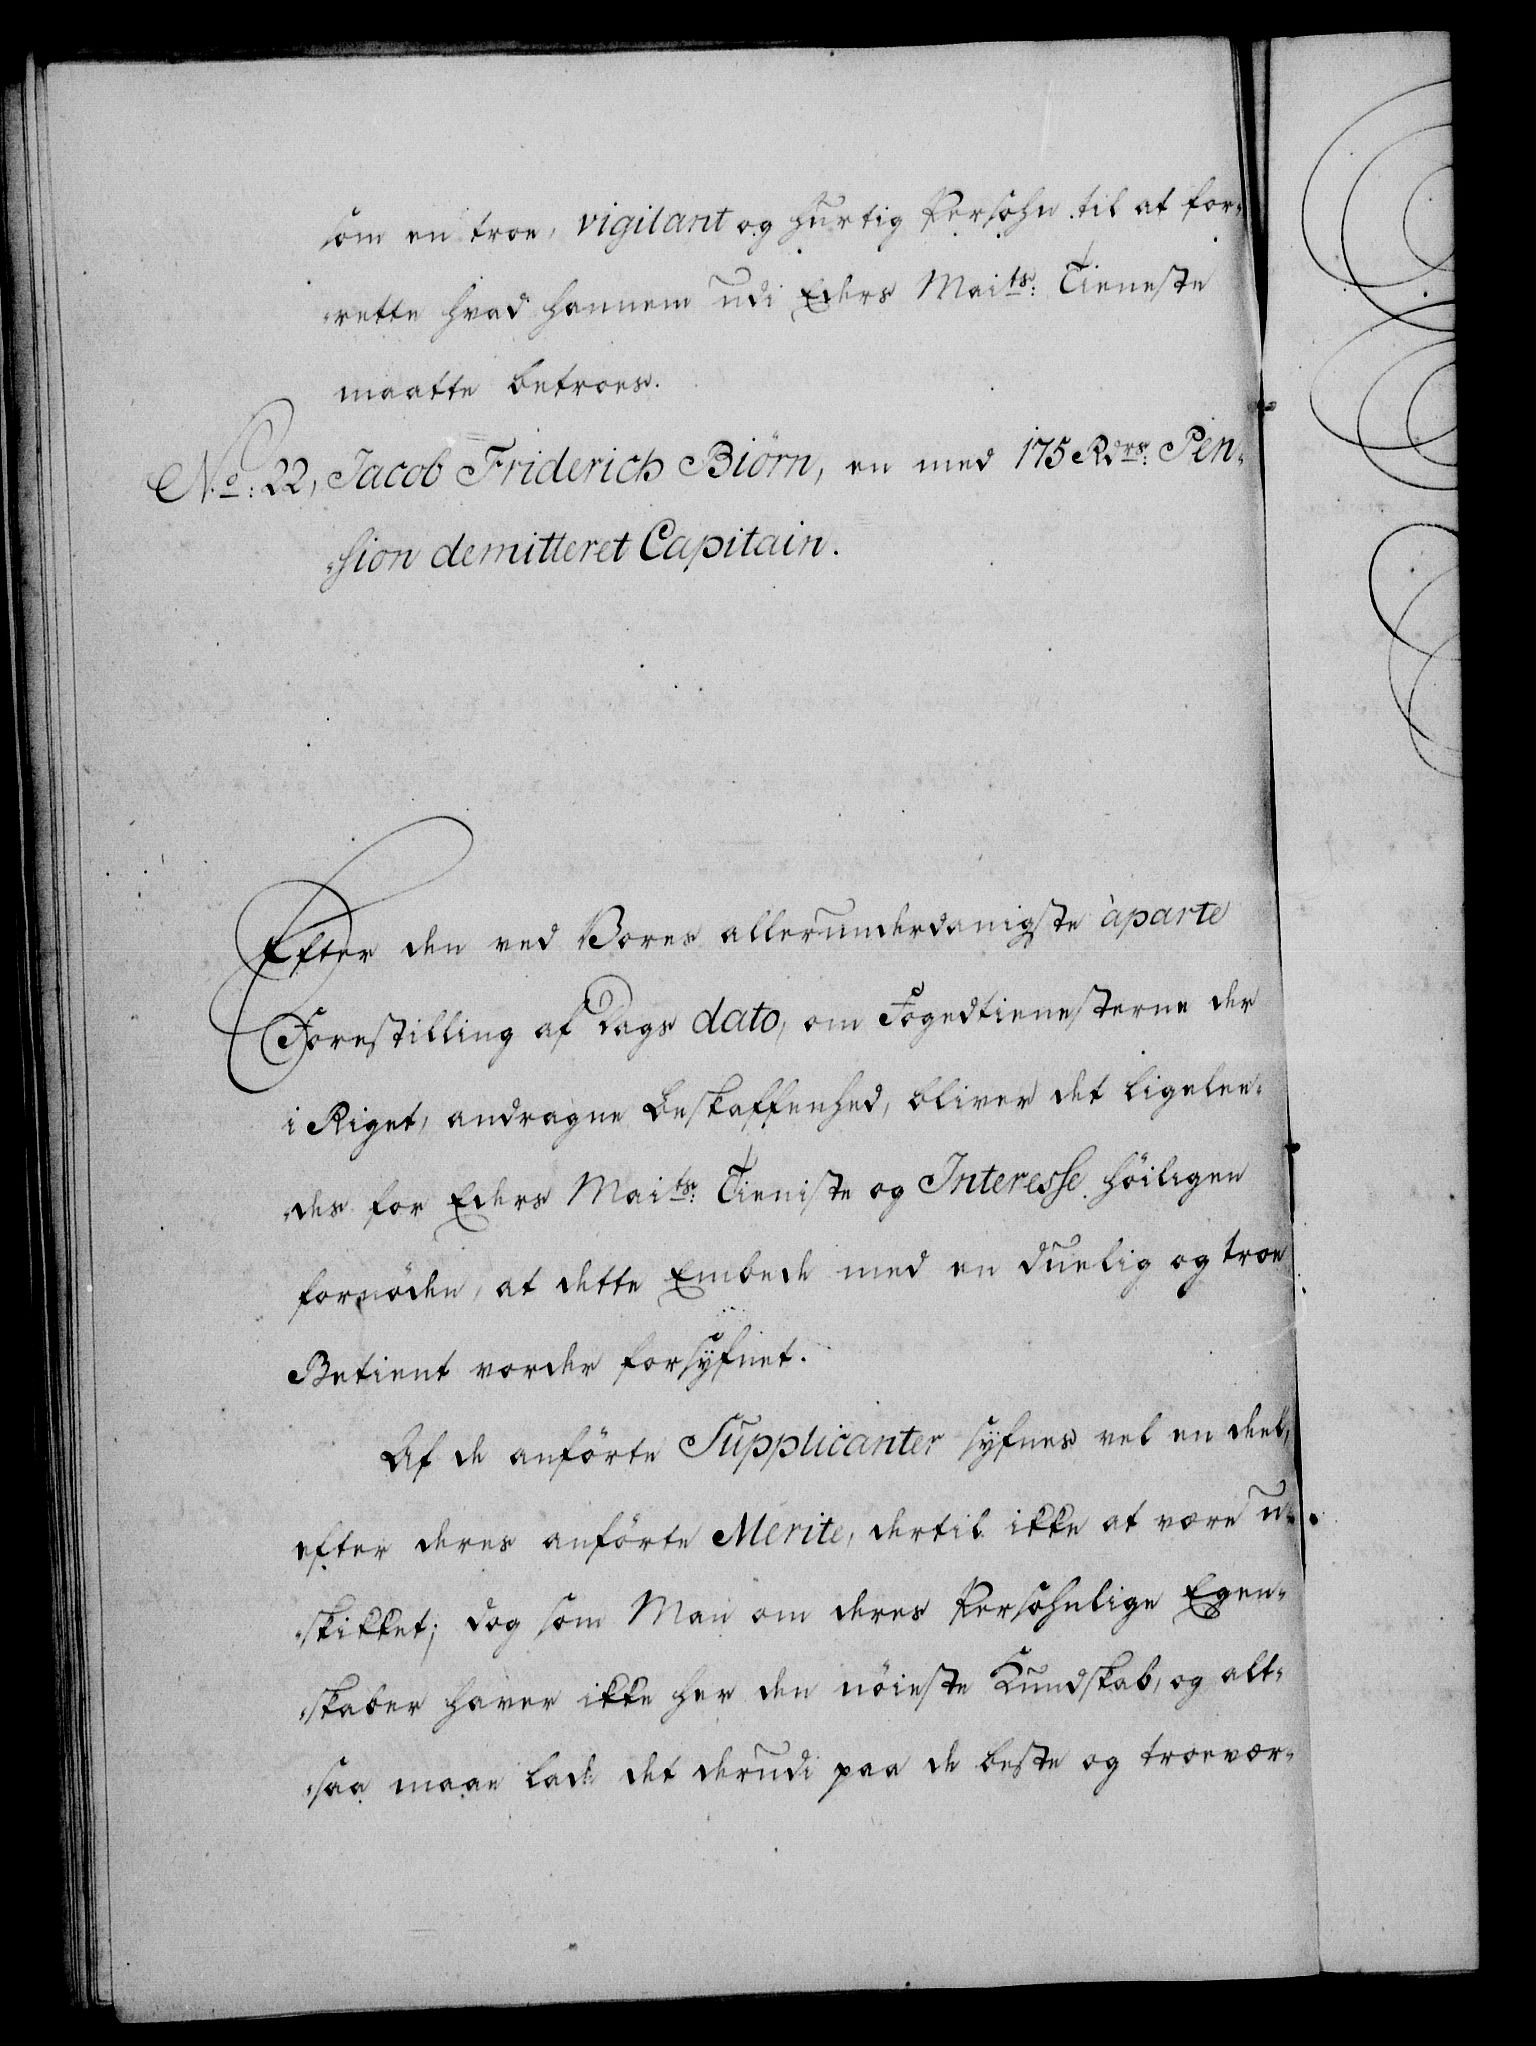 som en troe, vigilant og hurtig Persohn til at for-
-rette hvad hannem udi Eders Maits: Tieneste
maatte betroes.
No: 22, Jacob Friderich Biörn, en med 175 Rdrs: Pen-
-sion demitteret Capitain.
Efter den ved Vores allerunderdanigste àparte
Forestilling af Dags dato, om Fogedtienesterne der
i Riget, andragne Beskaffenhed, bliver det ligelee-
-des for Eders Maits: Tieniste og Interesse höiligen
fornöden, at dette Embede med en duelig og troe
Betient vorder forsÿfnet.
Af de anförte Supplicanter sÿfnes vel en deel,
efter deres anförte Merite, dertil ikke at være u-
-skikket; dog som Man om deres Persohnlige Egen-
-skaber haver ikke her den nöieste Kundskab, og alt-
-saa maae lade det derudi paa de beste og troevær-